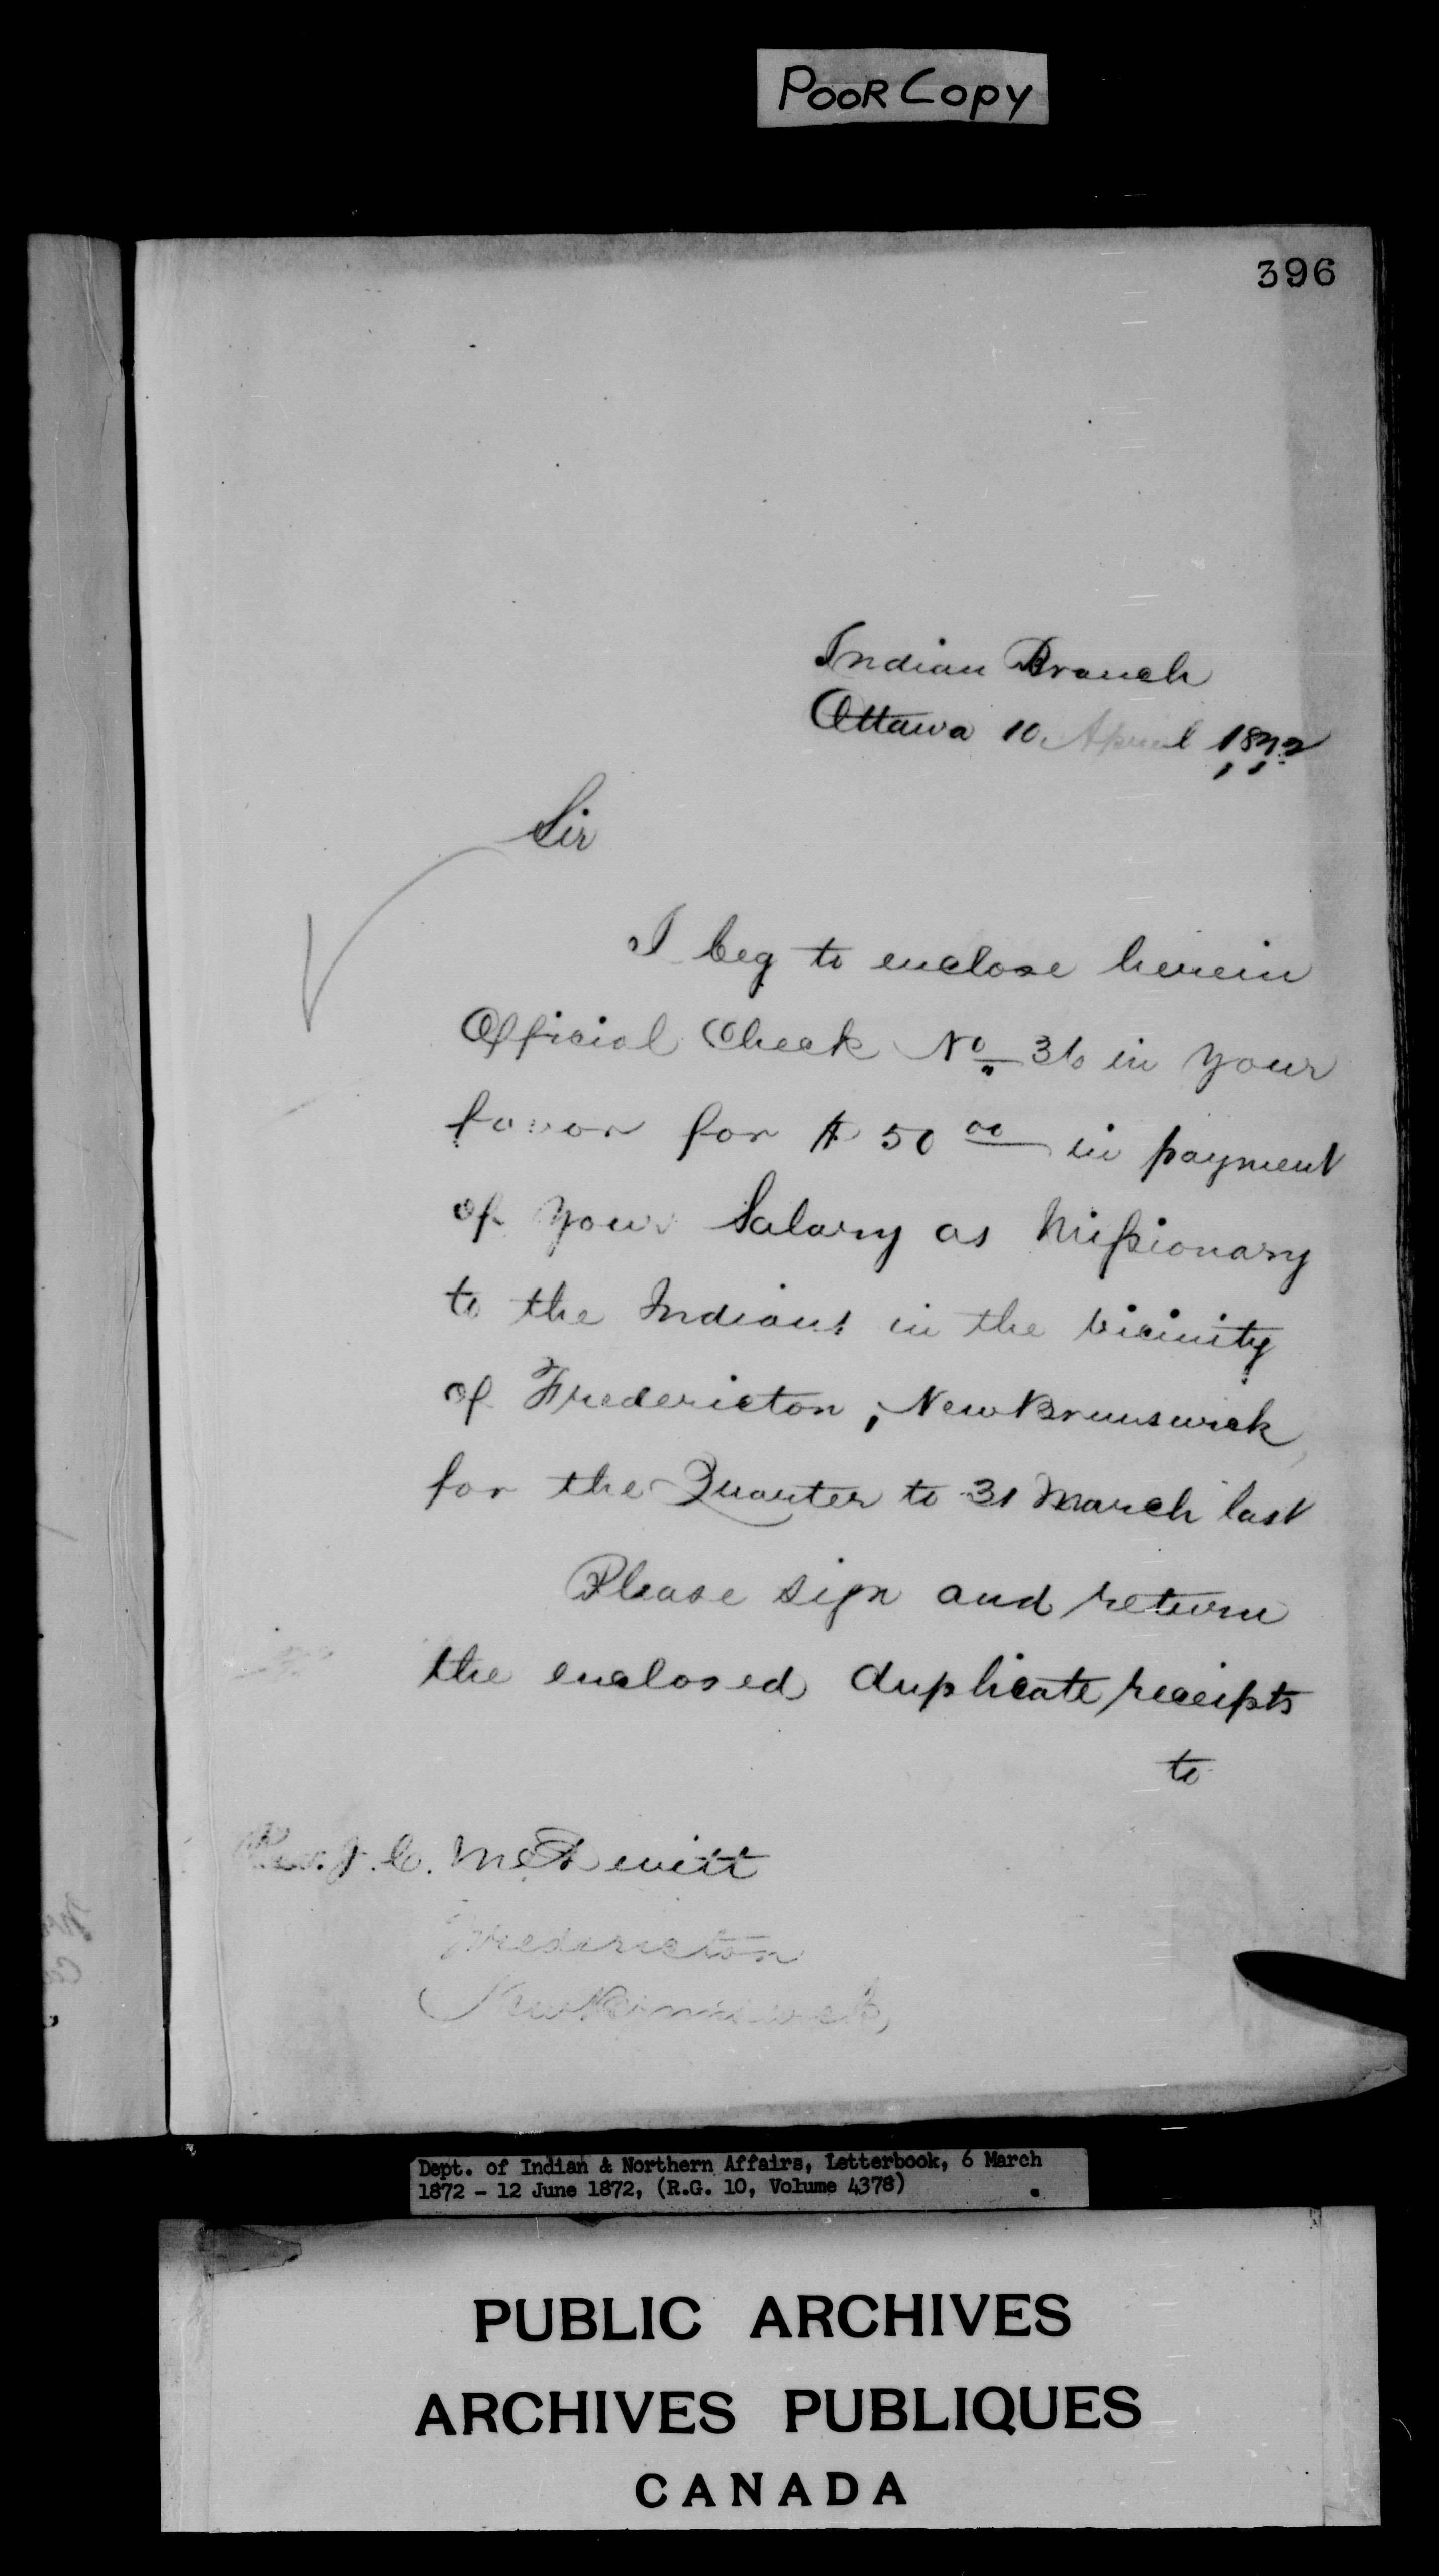 POOR COPY
396
Indian Branch
Ottawa 10 April 1872
Sir
I beg to enclose herein
Official Check No 36 in your
favor for $50 00 in payment
of your Salary as Missionary
to the Indians in the vicinity
of Fredericton, New Brunswick
for the Quarter to 31 March last
Please sign and return
the enclosed duplicate receipts
to
Rev. J. C. McDevitt
Fredericton
New Brunswick
Dept. of Indian & Northern Affairs, Letterbook, 6 March
1872 - 12 June 1872, (R.G. 10, Volume 4378)
PUBLIC ARCHIVES
ARCHIVES PUBLIQUES
CANADA